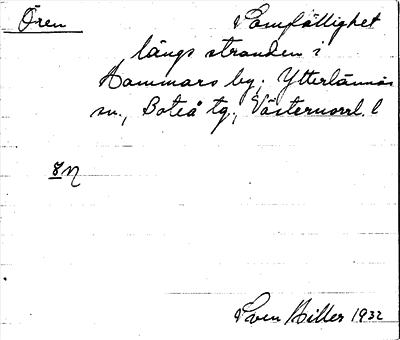 Ören Samfällighet
längs stranden i
Hammars by, Ytterlännäs
sn., Boteå tg., Västernorrl. l
Sven Hiller 1932